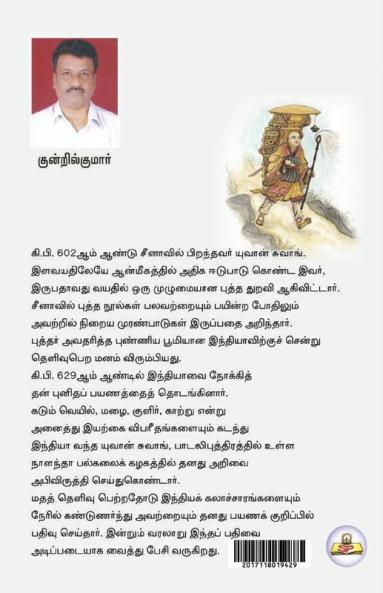 குன்றில்குமார்
கி.பி. 602ஆம் ஆண்டு சீனாவில் பிறந்தவர் யுவான் சுவாங்.
இளவயதிலேயே ஆன்மீகத்தில் அதிக ஈடுபாடு கொண்ட இவர்,
இருபதாவது வயதில் ஒரு முழுமையான புத்த துறவி ஆகிவிட்டார்.
சீனாவில் புத்த நூல்கள் பலவற்றையும் பயின்ற போதிலும்
அவற்றில் நிறைய முரண்பாடுகள் இருப்பதை அறிந்தார்.
புத்தர் அவதரித்த புண்ணிய பூமியான இந்தியாவிற்குச் சென்று
தெளிவுபெற மனம் விரும்பியது.
கி.பி. 629ஆம் ஆண்டில் இந்தியாவை நோக்கித்
தன் புனிதப் பயணத்தைத் தொடங்கினார்.
கடும் வெயில், மழை, குளிர், காற்று என்று
அனைத்து இயற்கை விபரீதங்களையும் கடந்து
இந்தியா வந்த யுவான் சுவாங், பாடலிபுத்திரத்தில் உள்ள
நாளந்தா பல்கலைக் கழகத்தில் தனது அறிவை
அபிவிருத்தி செய்துகொண்டார்.
மதத் தெளிவு பெற்றதோடு இந்தியக் கலாச்சாரங்களையும்
நேரில் கண்டுணர்ந்து அவற்றையும் தனது பயணக் குறிப்பில்
பதிவு செய்தார். இன்றும் வரலாறு இந்தப் பதிவை
அடிப்படையாக வைத்து பேசி வருகிறது.
2017118019429